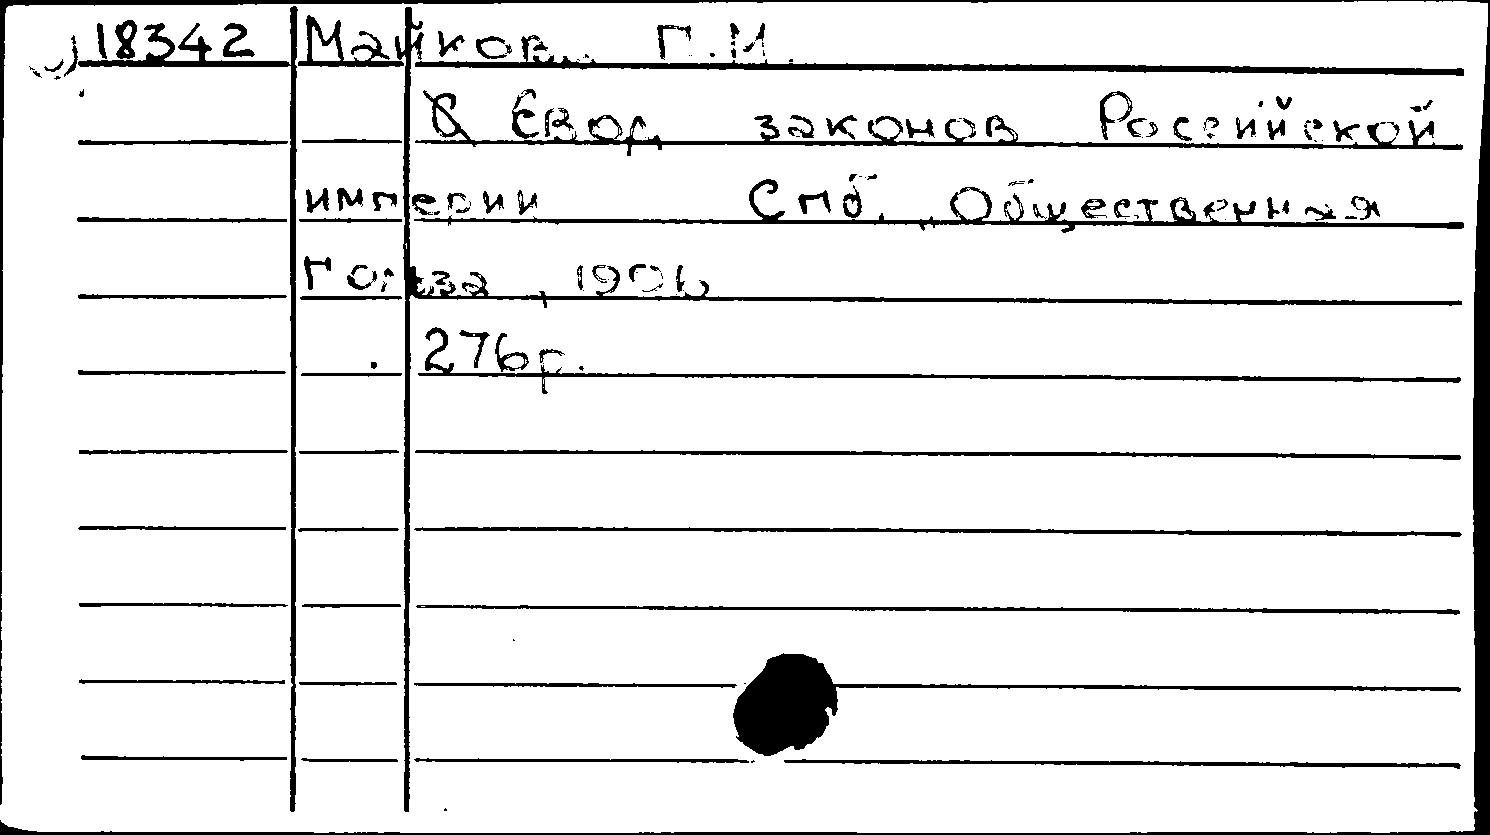 18342 Майков, П.М.
Свод законов Российской
империи Спб. "Общественная
Польза, 1906
276р.